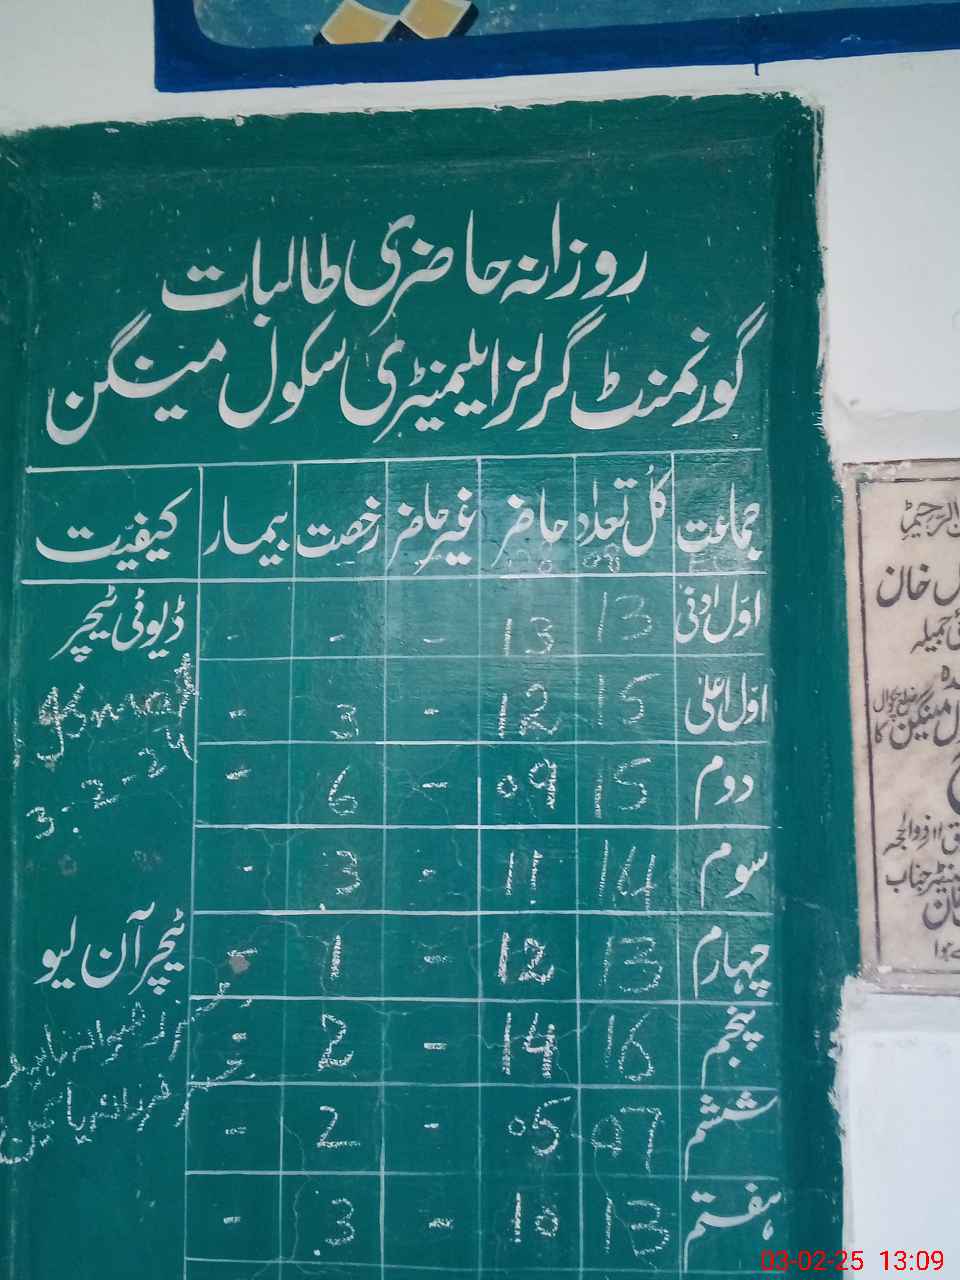 روزانہ حاضری طالبات
گورنمنٹ گرلز ایلیمنٹری سکول مینگن
جماعت کل تعداد حاضر غیر حاضر رخصت بیمار کیفیت
اوّل ادنیٰ 13 13 - - - ڈیوٹی ٹیچر
اوّل اعلیٰ 15 12 - 3 -
دوم 15 09 - 6 - 3-2-25
سوم 14 11 - 3 -
چہارم 13 12 - 1 - ٹیچر آن لیو
پنجم 16 14 - 2 -
ششم 07 05 - 2 -
ہفتم 13 10 - 3 -
خان
جمیلہ
ضلع چکوال
مینگن کا
جناب
03-02-25 13:09